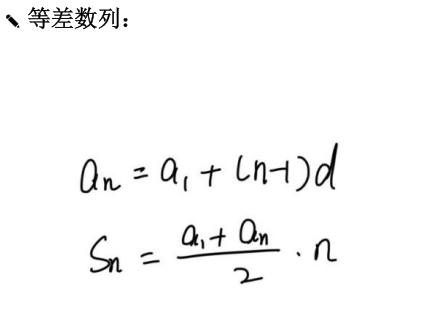 等差数列：
aₙ = a₁ + (n-1)d
Sₙ = (a₁ + aₙ)/2 · n